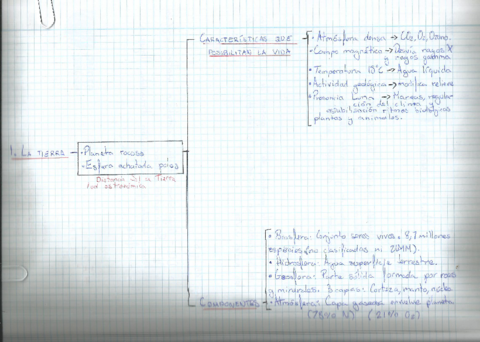 CARACTERÍSTICAS QUE
POSIBILITAN LA VIDA
• Atmósfera densa → CO2, O2, Ozono.
• Campo magnético → Desvía rayos X
y rayos gamma.
• Temperatura 15°C → Agua líquida.
• Actividad geológica → modifica relieve
• Presencia Luna → Mareas, regula-
ción del clima y
estabilización ritmos biológicos
plantas y animales.
1. LA TIERRA
• Planeta rocoso
• Esfera achatada polos
Distancia la Tierra
astronómica
• Biosfera: Conjunto seres vivos. 8,7 millones
especies (no clasificadas ni 2OMM).
• Hidrosfera: Agua superficie terrestre.
• Geosfera: Parte sólida formada por rocas
y minerales. 3 capas: Corteza, manto, núcleo
COMPONENTES
• Atmósfera: Capa gaseosa envuelve planeta
(78% N) (21% O2)